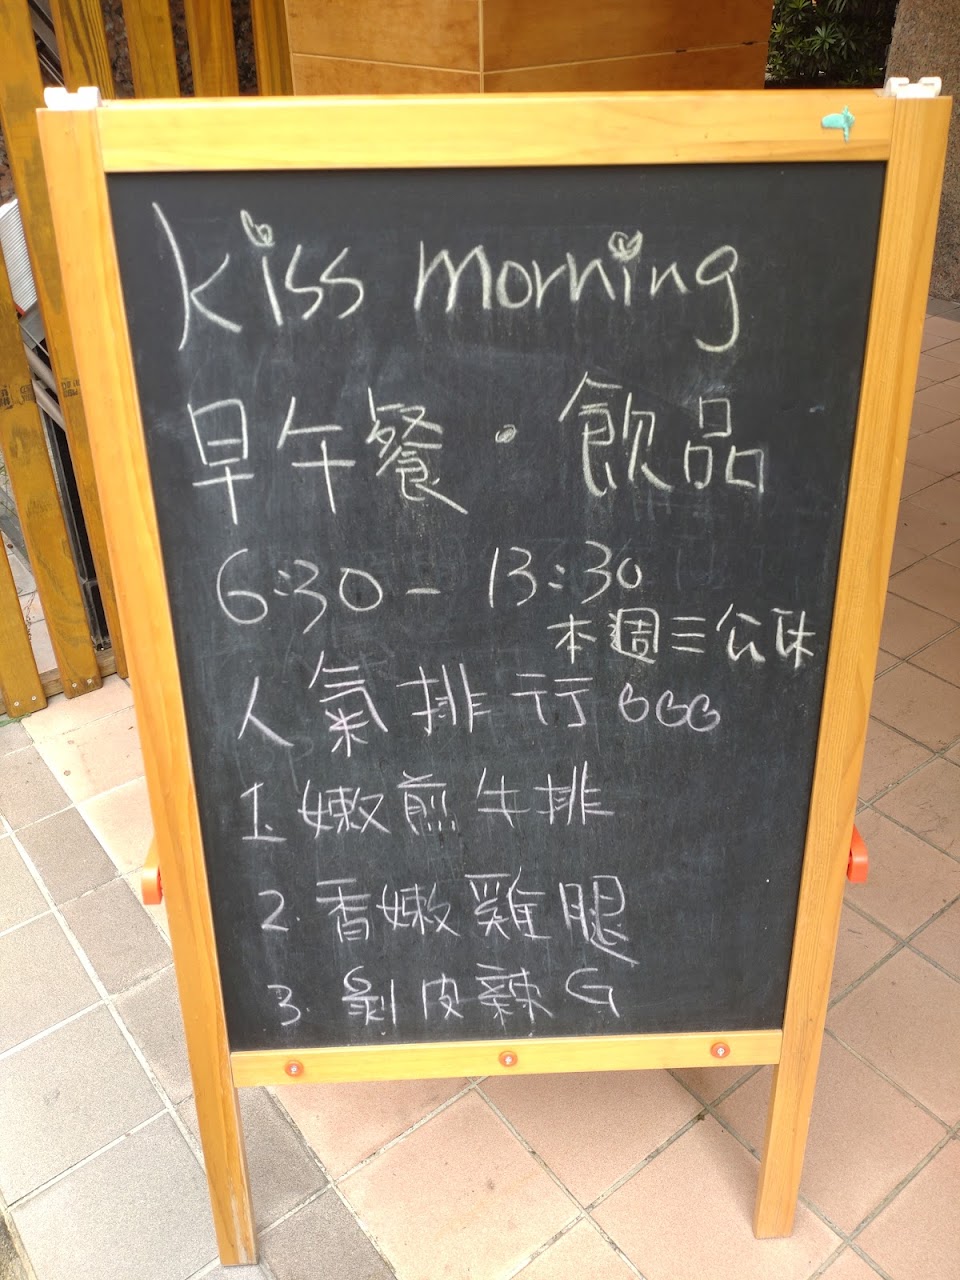 kiss morning
早午餐・飲品
6:30 - 13:30
本週三公休
人氣排行
1. 嫩煎牛排
2. 香嫩雞腿
3. 剝皮辣G